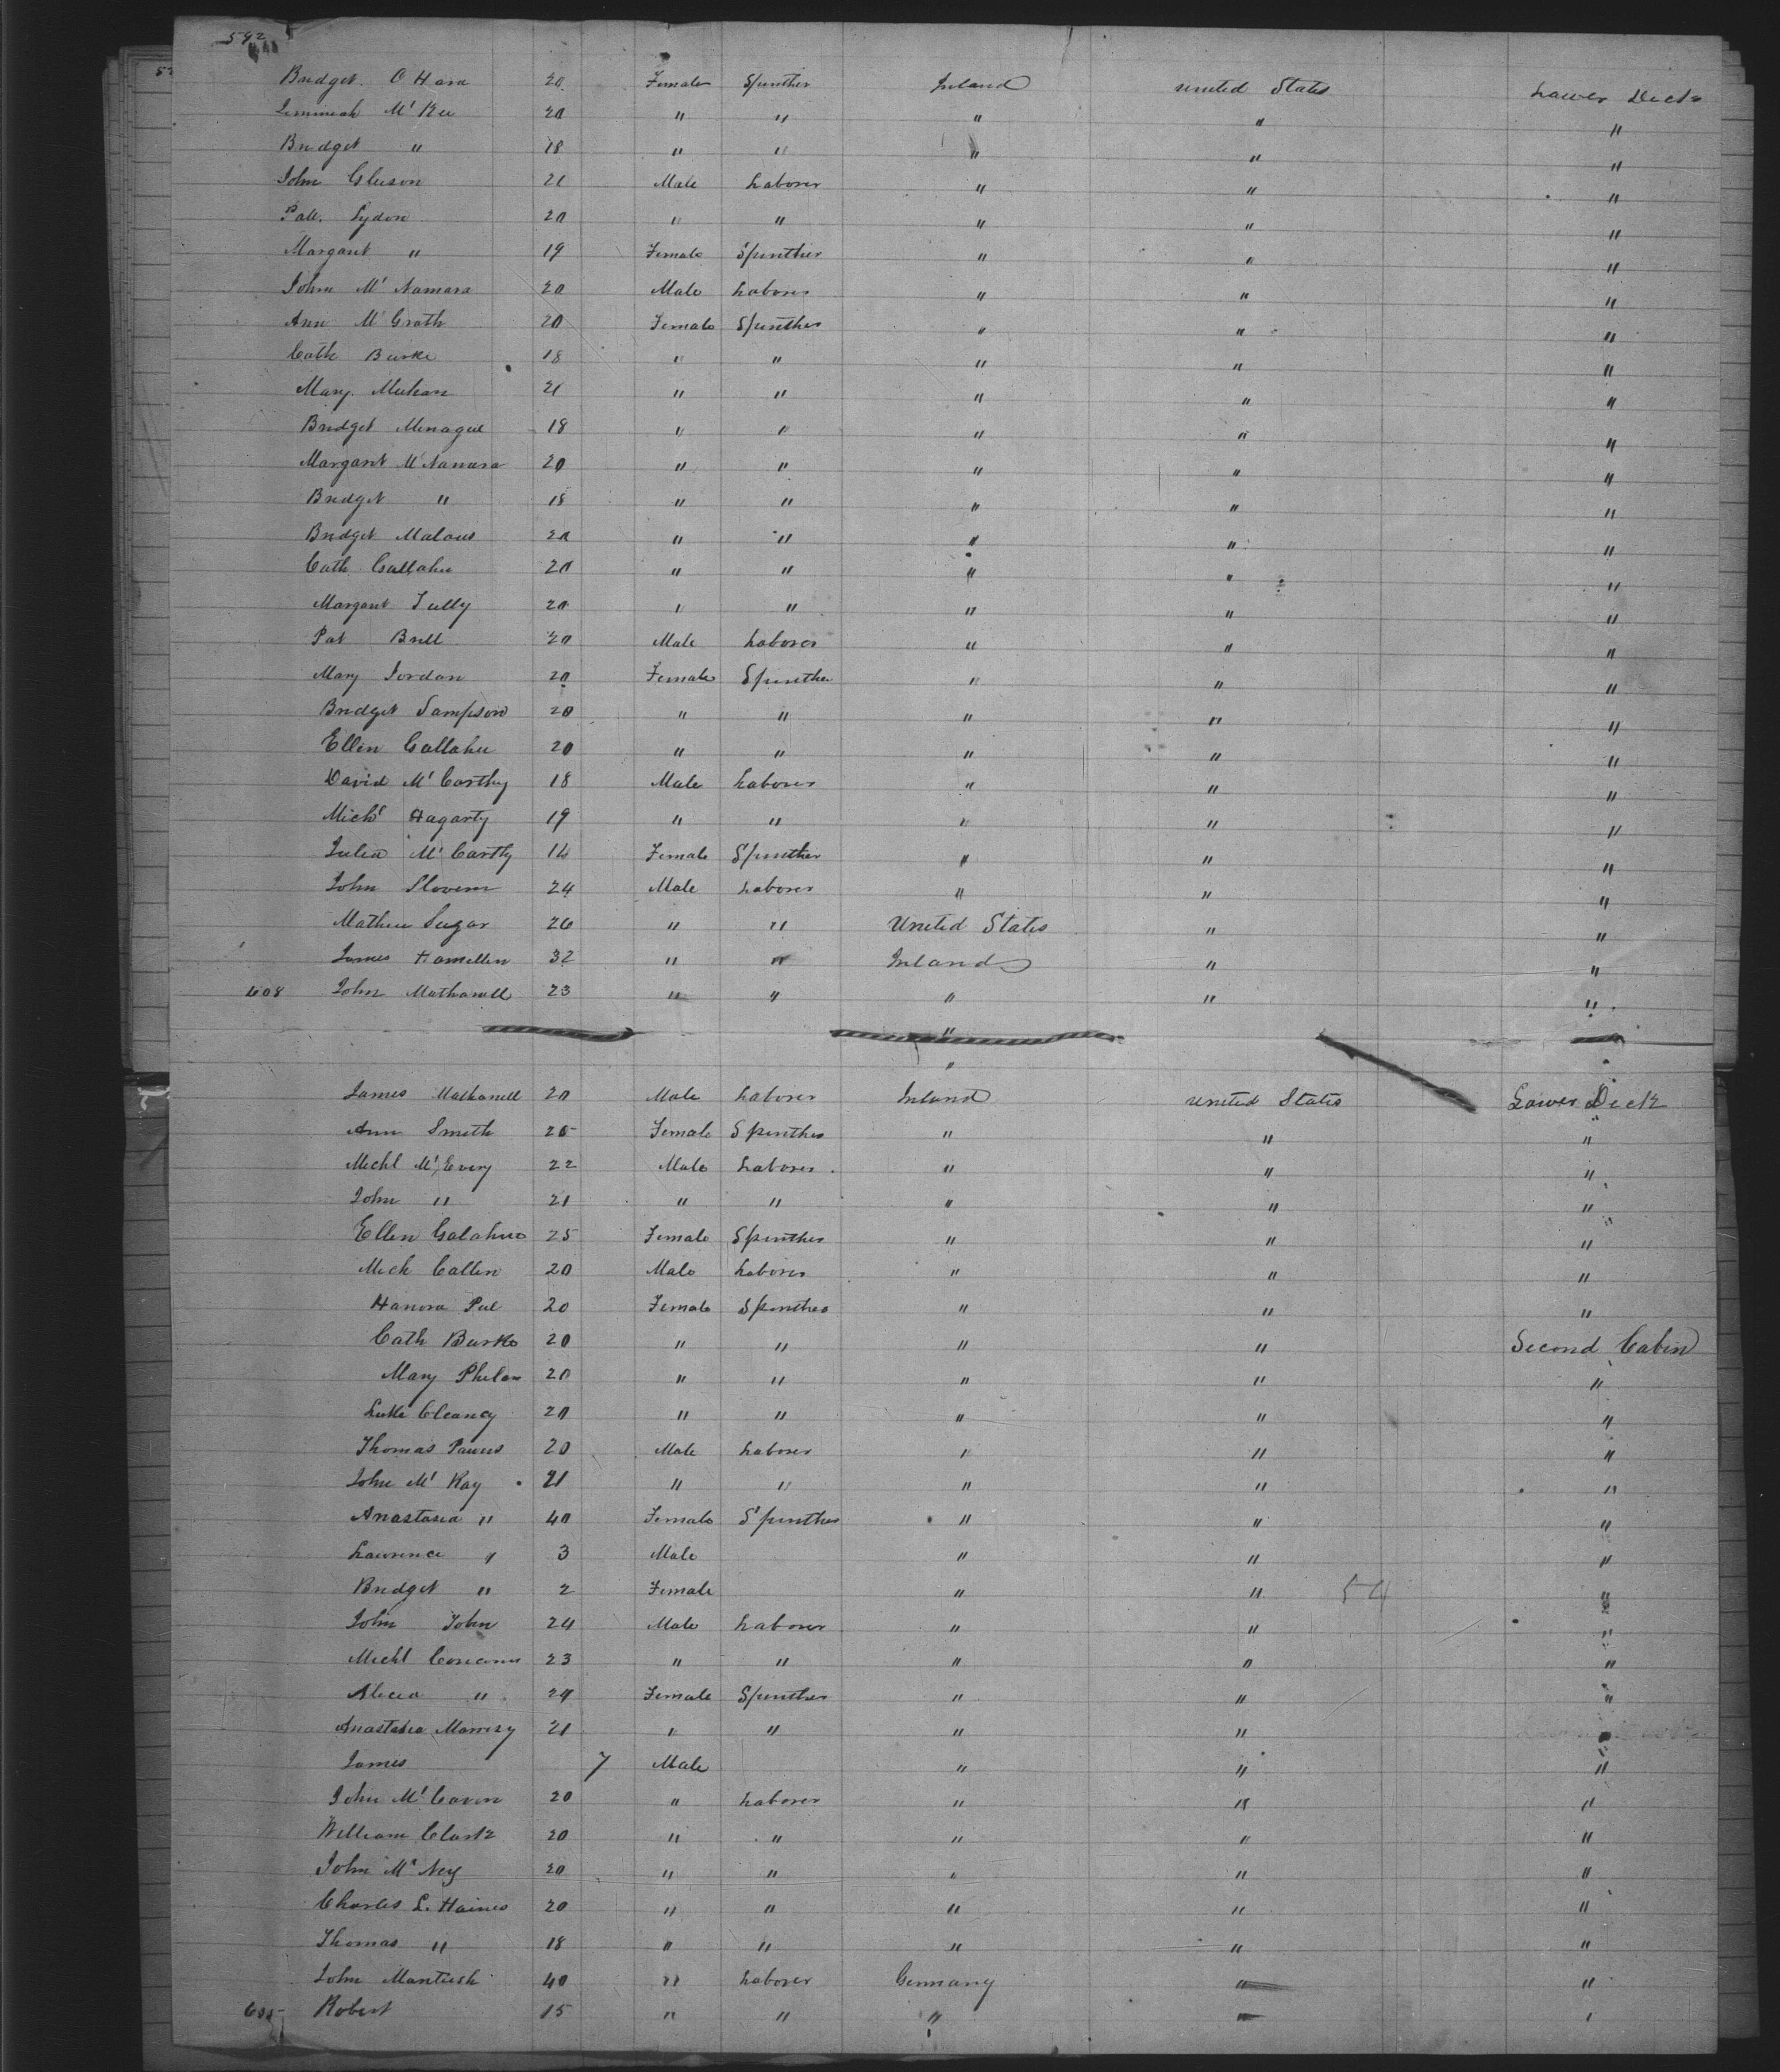 592
Bridget O Hara 20 Female Spinster Ireland United States Lower Deck
Mc Kee 20 " " " " "
Bridget " 18 " " " " "
John Gleeson 21 Male Laborer " " "
Patt. Lydon 20 " " " " "
Margaret " 19 Female Spinster " " "
John Mc Namara 20 Male Laborer " " "
Ann Mc Grath 20 Female Spinster " " "
Cath Burke 18 " " " " "
Mary Meehan 21 " " " " "
Bridget 18 " " " " "
Margaret Mc Namara 20 " " " " "
Bridget " 18 " " " " "
Bridget Malous 20 " " " " "
Cath Callahu 20 " " " " "
Margaret Tully 20 " " " " "
Pat Brill 20 Male Laborer " " "
Mary Jordan 20 Female Spinster " " "
Bridget Sampson 20 " " " " "
Ellen Callahu 20 " " " " "
David Mc Carthy 18 Male Laborer " " "
Michl Hagarty 19 " " " " "
Julia Mc Carthy 16 Female Spinster " " "
John 24 Male Laborer " " "
Mathew Sugar 26 " " United States " "
James Hamellin 32 " " Ireland " "
608 John Mathanell 23 " " " " "
"
"
James Mathanell 20 Male Laborer Ireland United States Lower Deck
Ann Smith 25 Female Spinster " " "
Michl Mc Every 22 Male Laborer " " "
John " 21 " " " " "
Ellen Galahue 25 Female Spinster " " "
Mich Callen 20 Male Laborer " " "
Hanora Peel 20 Female Spinster " " "
Cath Burke 20 " " " " Second Cabin
Mary Phelan 20 " " " " "
Luke Cleancy 20 " " " " "
Thomas 20 Male Laborer " " "
John Mc Kay 21 " " " " "
Anastasia " 40 Female Spinster " " "
Lawrence " 3 Male " " "
Bridget " 2 Female " " "
John Tobin 24 Male Laborer " " "
Michl 23 " " " " "
Alicia " 24 Female Spinster " " "
Anastasia Morrisy 21 " " " " "
James 7 Male " " "
John Mc Caven 20 " Laborer " " "
William Clark 20 " " " " "
John Mc Ney 20 " " " " "
Charles L. Haines 20 " " " " "
Thomas " 18 " " " " "
John 40 " Laborer Germany " "
635 Robert 15 " " " " "